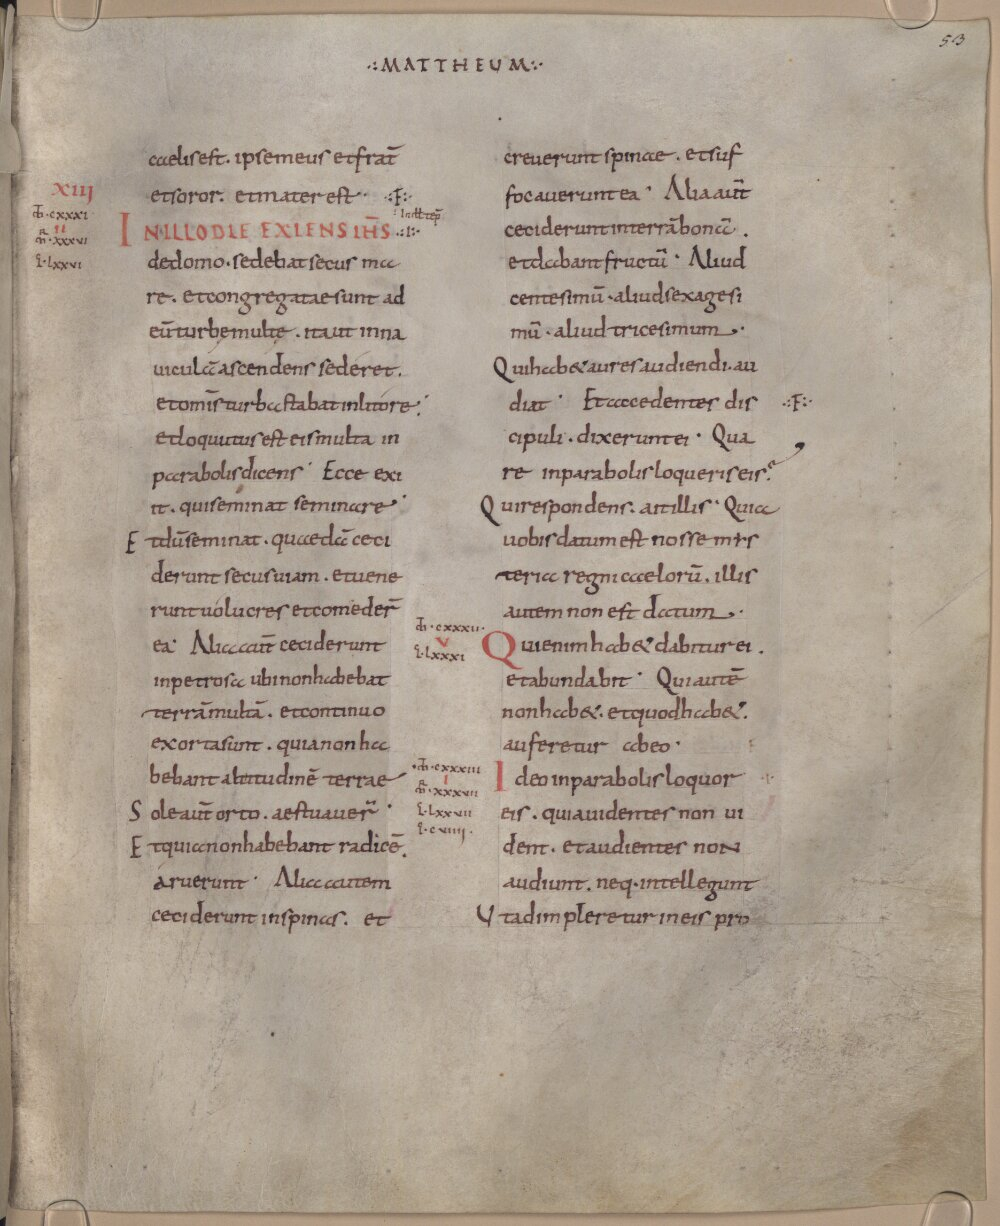 53
·:MATTHEUM:·
caelis est. ipse meus et frat̄
et soror. et mater est :F:
XIII
IN ILLO DIE EXIENS IHS̄
CXXXI
II
XXXVI
LXXVI
de domo. sedebat secus ma
re. et congregatae sunt ad
eū turbe multę. ita ut in na
uiculā ascendens sederet.
et om̄is turba stabat in litore.
et loquutus est eis multa in
parabolis dicens. Ecce exi
it. qui seminat seminare.
Et dū seminat. quaedā ceci
derunt secus uiam. et uene
runt uolucres et comederr̄
ea. Alia aut̄ ceciderunt
in petrosa ubi non habebat
terrā multā. et continuo
exorta sunt. quia non ha
bebant altitudinē terrae
Sole aut̄ orto. aestuauer̄.
Et quia non habebant radicē.
aruerunt. Alia autem
ceciderunt in spinas. et
creuerunt spinae. et suf
focauerunt ea. Alia aut̄
ceciderunt in terrā bonā.
et dabant fructū. Aliud
centesimū. aliud sexagesi
mū. aliud tricesimum.
Qui hab& aures audiendi. au
diat. Et accedentes dis :F:
cipuli. dixerunt ei. Qua
re in parabolis loqueris eis.
Qui respondens. ait illis. Quia
uobis datum est nosse mis
teria regni caelorū. illis
autem non est datum.
CXXXII
V
LXXXI
Qui enim hab& dabitur ei.
et abundabit. Qui autē
non hab&. et quod hab&.
auferetur ab eo.
CXXXIII
I
XXXVII
LXXVII
CVIIII
Ideo in parabolis loquor
eis. quia uidentes non ui
dent. et audientes non
audiunt. neq. intellegunt
Ut adimpleretur in eis pro